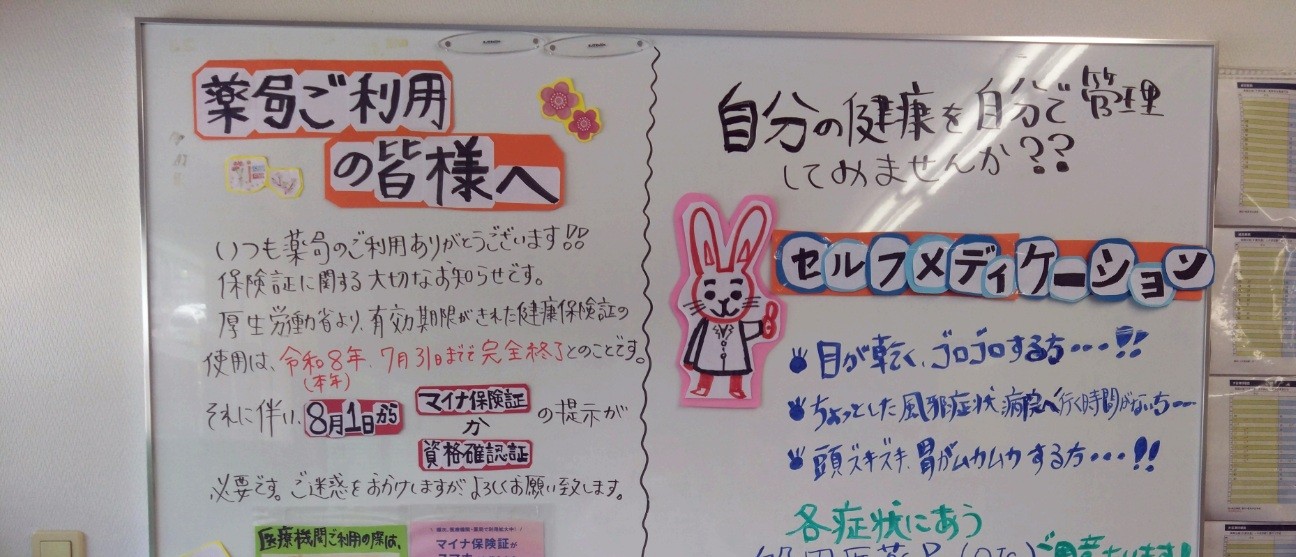 薬局ご利用
の皆様へ
いつも薬局のご利用ありがとうございます!!
保険証に関する大切なお知らせです。
厚生労働省より、有効期限がきれた健康保険証の
使用は、令和8年、7月31日までで完全終了とのことです。
(本年)
それに伴い、8月1日から マイナ保険証 か 資格確認証 の提示が
必要です。ご迷惑をおかけしますが、よろしくお願い致します。
医療機関ご利用の際は、
マイナ保険証が
自分の健康を自分で管理
してみませんか??
セルフメディケーション
目が乾く、ゴロゴロする方・・・!!
ちょっとした風邪症状、病院へ行く時間がない方・・・
頭ズキズキ、胃がムカムカする方・・・!!
各症状にあう